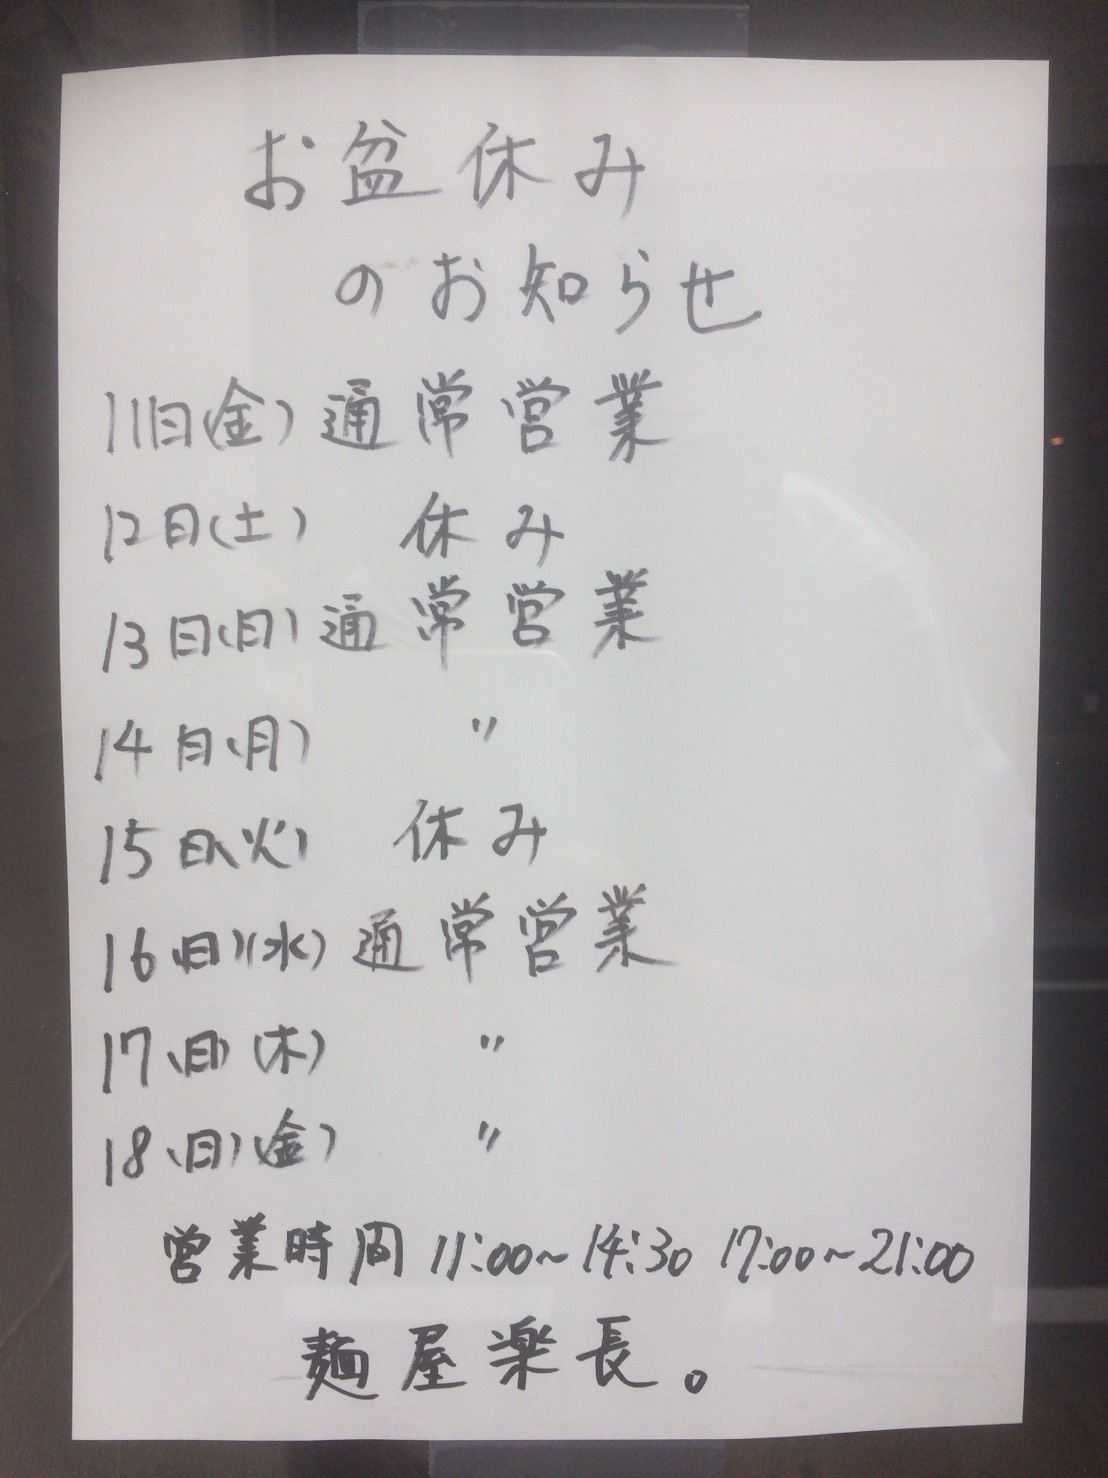 お盆休み
のお知らせ
11日(金)通常営業
12日(土) 休み
13日(日)通常営業
14日(月) 〃
15日(火) 休み
16日(水)通常営業
17日(木) 〃
18日(金) 〃
営業時間 11:00~14:30 17:00~21:00
麺屋楽長。